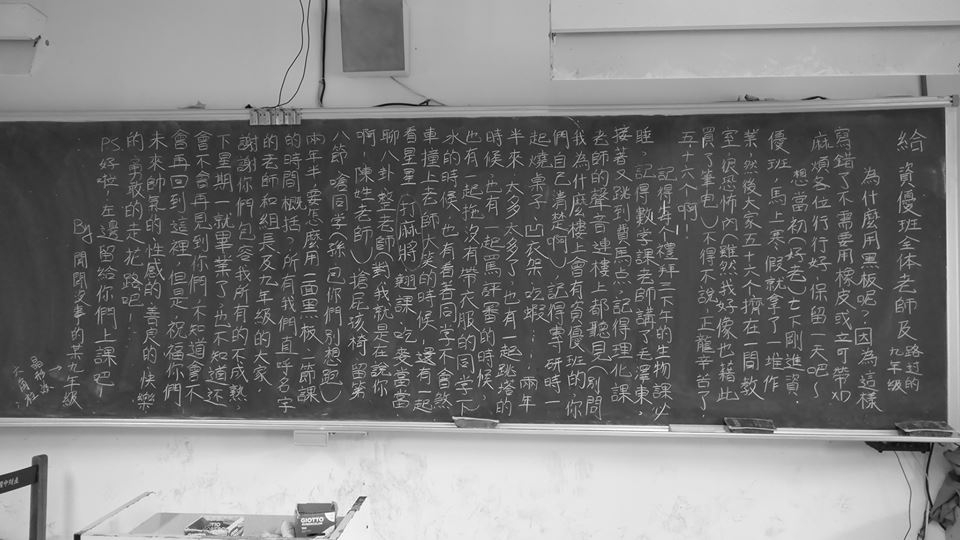 給 資優班全体老師及路过的九年級
為什麼用黑板呢?因為這樣
寫錯了不需要用橡皮或立可帶XD
麻煩各位行行好,保留一天吧~
想當初(好老)七下剛進資
優班,馬上寒假就拿了一堆作
業,然後大家五十六个擠在一間教
室淚怨怖內(雖然我好像也藉此
買了筆电)不得不說,正龍辛苦了,
五十六个啊!!
記得每人禮拜三下午的生物課必
睡,記得數学課老師講了毛澤東,
接著又跳到費馬点,記得理化課
老師的聲音連樓上都聽見(別問
我為什麼樓上會有資優班的,你
們自己清楚啊)記得專研時一
起燒桌子、凹衣架、吃蝦……兩年
半來,太多太多了,也有一起跳塔的
時候,也有一起罵評審的時候,
也有一起拖沒有帶衣服的同学下
水的時候,也有看著同学不会煞
車撞上老師大笑的時候,還有一起
看星星(打麻將)翹課、吃麥當當
聊八卦、整老師(對,我就是在說你
啊,陳姓老師)搶尼該椅、留第
八節、嗆同学(孫包你們別想跑)
兩年半,要怎麼用一面黑板,一節課
的時間概括?所有我們直呼名字
的老師和組長及九年級的大家,
謝謝你們包容我所有的不成熟,
下星期一就畢業了,也不知道还
會不會再見到你們,不知道會不
會再回到這裡,但是,祝福你們
未來帥氣的、性感的、善良的、快樂
的、勇敢的走花路吧!
PS.好啦,左邊留給你們上課吧~
By 閒閒沒事的某九年級
GIOTTO